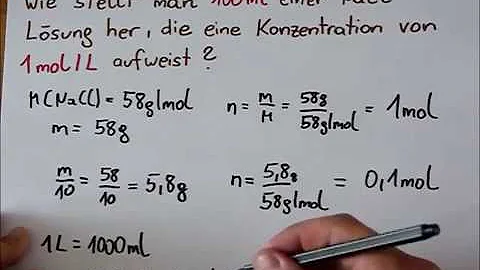 Wie stellt man 100ml einer
Lösung her, die eine Konzentration von
1mol/L aufweist?
M(NaCl) = 58g/mol
m = 58g
n = m/M = 58g/58g/mol = 1mol
m/10 = 58/10 = 5,8g
n = 5,8g/58g/mol = 0,1mol
1L = 1000ml